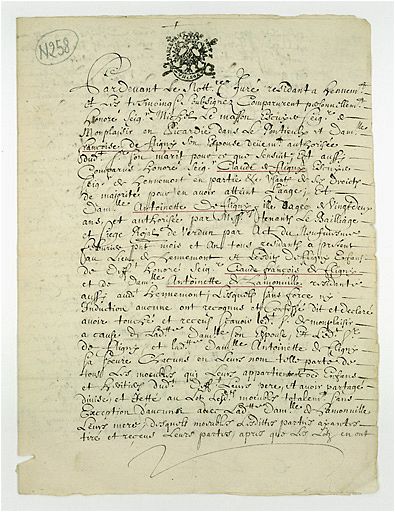 N258
Pardevant Le Nott.re Juré residant a Hennem.t
Et Les tesmoings soubsignez Comparurent personnellem.t
Honore Seig.r Michel Le masson Escuyer Seig.r de
Monplaisir en Picardie dans Le Ponthieu et Dam.lle
françoise de fligny son Espouse devem.t authorisée
dud.t Son marit pour ce que sensuit, Et aussy
Comparut Honoré Seig.r Claude de fligny Escuyer
Seig.r de Hennemont en partie Usant de ses droicts
de majorité pour en avoir atteint Laage, Et
Dam.lle Antoinette de fligny fille aagée de Vingt deux
ans, et authorisée par Mess.rs tenants Le Bailliage
et Siege Royal de Verdun par act du
pnt mois et an tous presents a present
au Lieu de Hennemont et Lesdits de fligny Enfans
de deff.t Honoré Seig.r Claude françois de fligny
et de dam.lle Antoinette de Zamonville residente
aussy aud. Hennemont, Lesquels sans force ny
Induction aucune ont recognus et Confessé dit et declaré
avoir touché et receus sçavoir led. s.r de monplaisir
a cause de lad.te dam.lle son Espouse, Et led. s.r
de fligny et lad.te dam.lle Antoinette de fligny
sa soeure Chacuns en Leurs nom telle parte de
tous Les meubles qui Leurs appartiennent Enfans
et Heritiers dud.t deff.t Leurs pere, et avoir partagé
divisé et Jetté au Lot Lesd.ts meubles totalem.t sans
Exception daucuns avec Lad.te dam.lle de Zamonville
Leurs mere, desquels meubles Lesdittes parties ayantes
tire et receus Leurs parties, apres que les Lots en ont